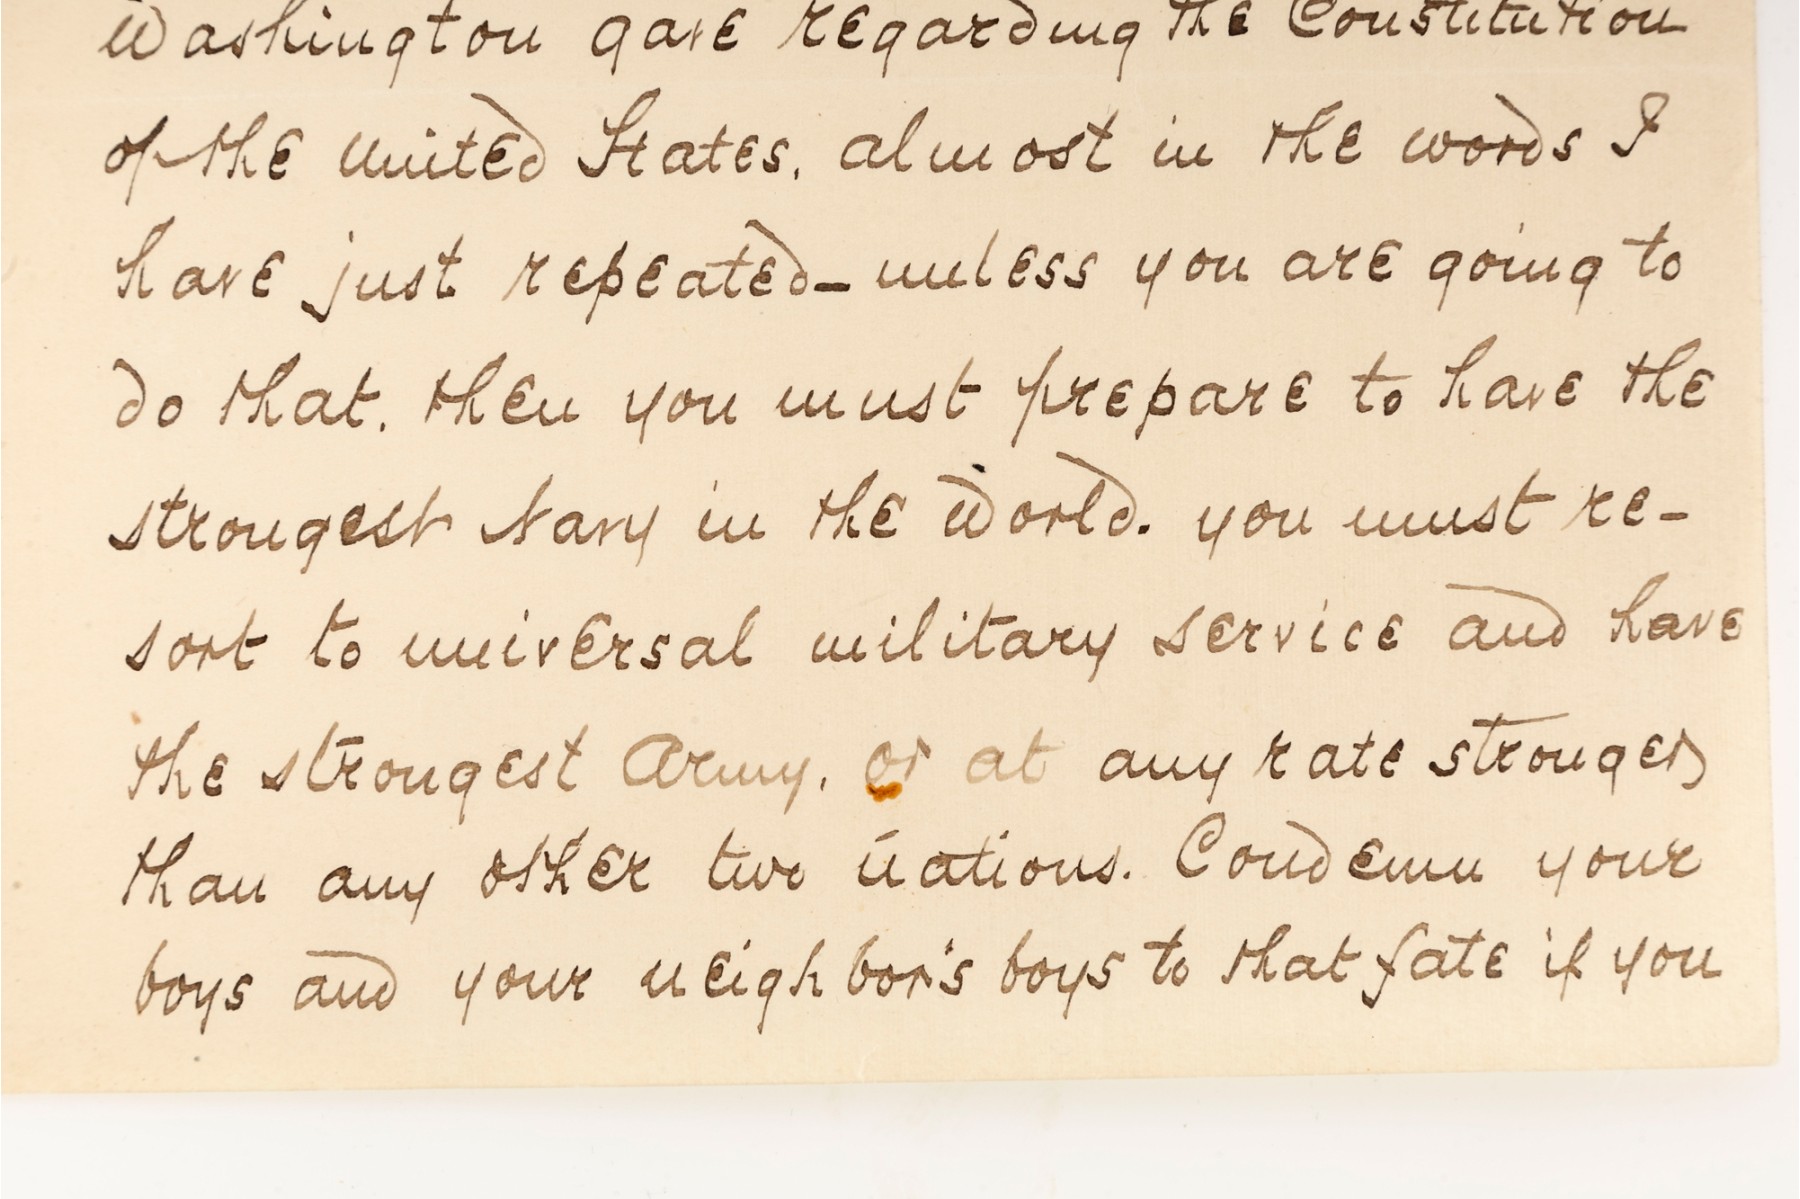 Washington gave regarding the Constitution
of the United States, almost in the words I
have just repeated - unless you are going to
do that, then you must prepare to have the
strongest Navy in the World. you must re-
sort to universal military service and have
the strongest Army, or at any rate stronger
than any other two nations. Condemn your
boys and your neighbor's boys to that fate if you